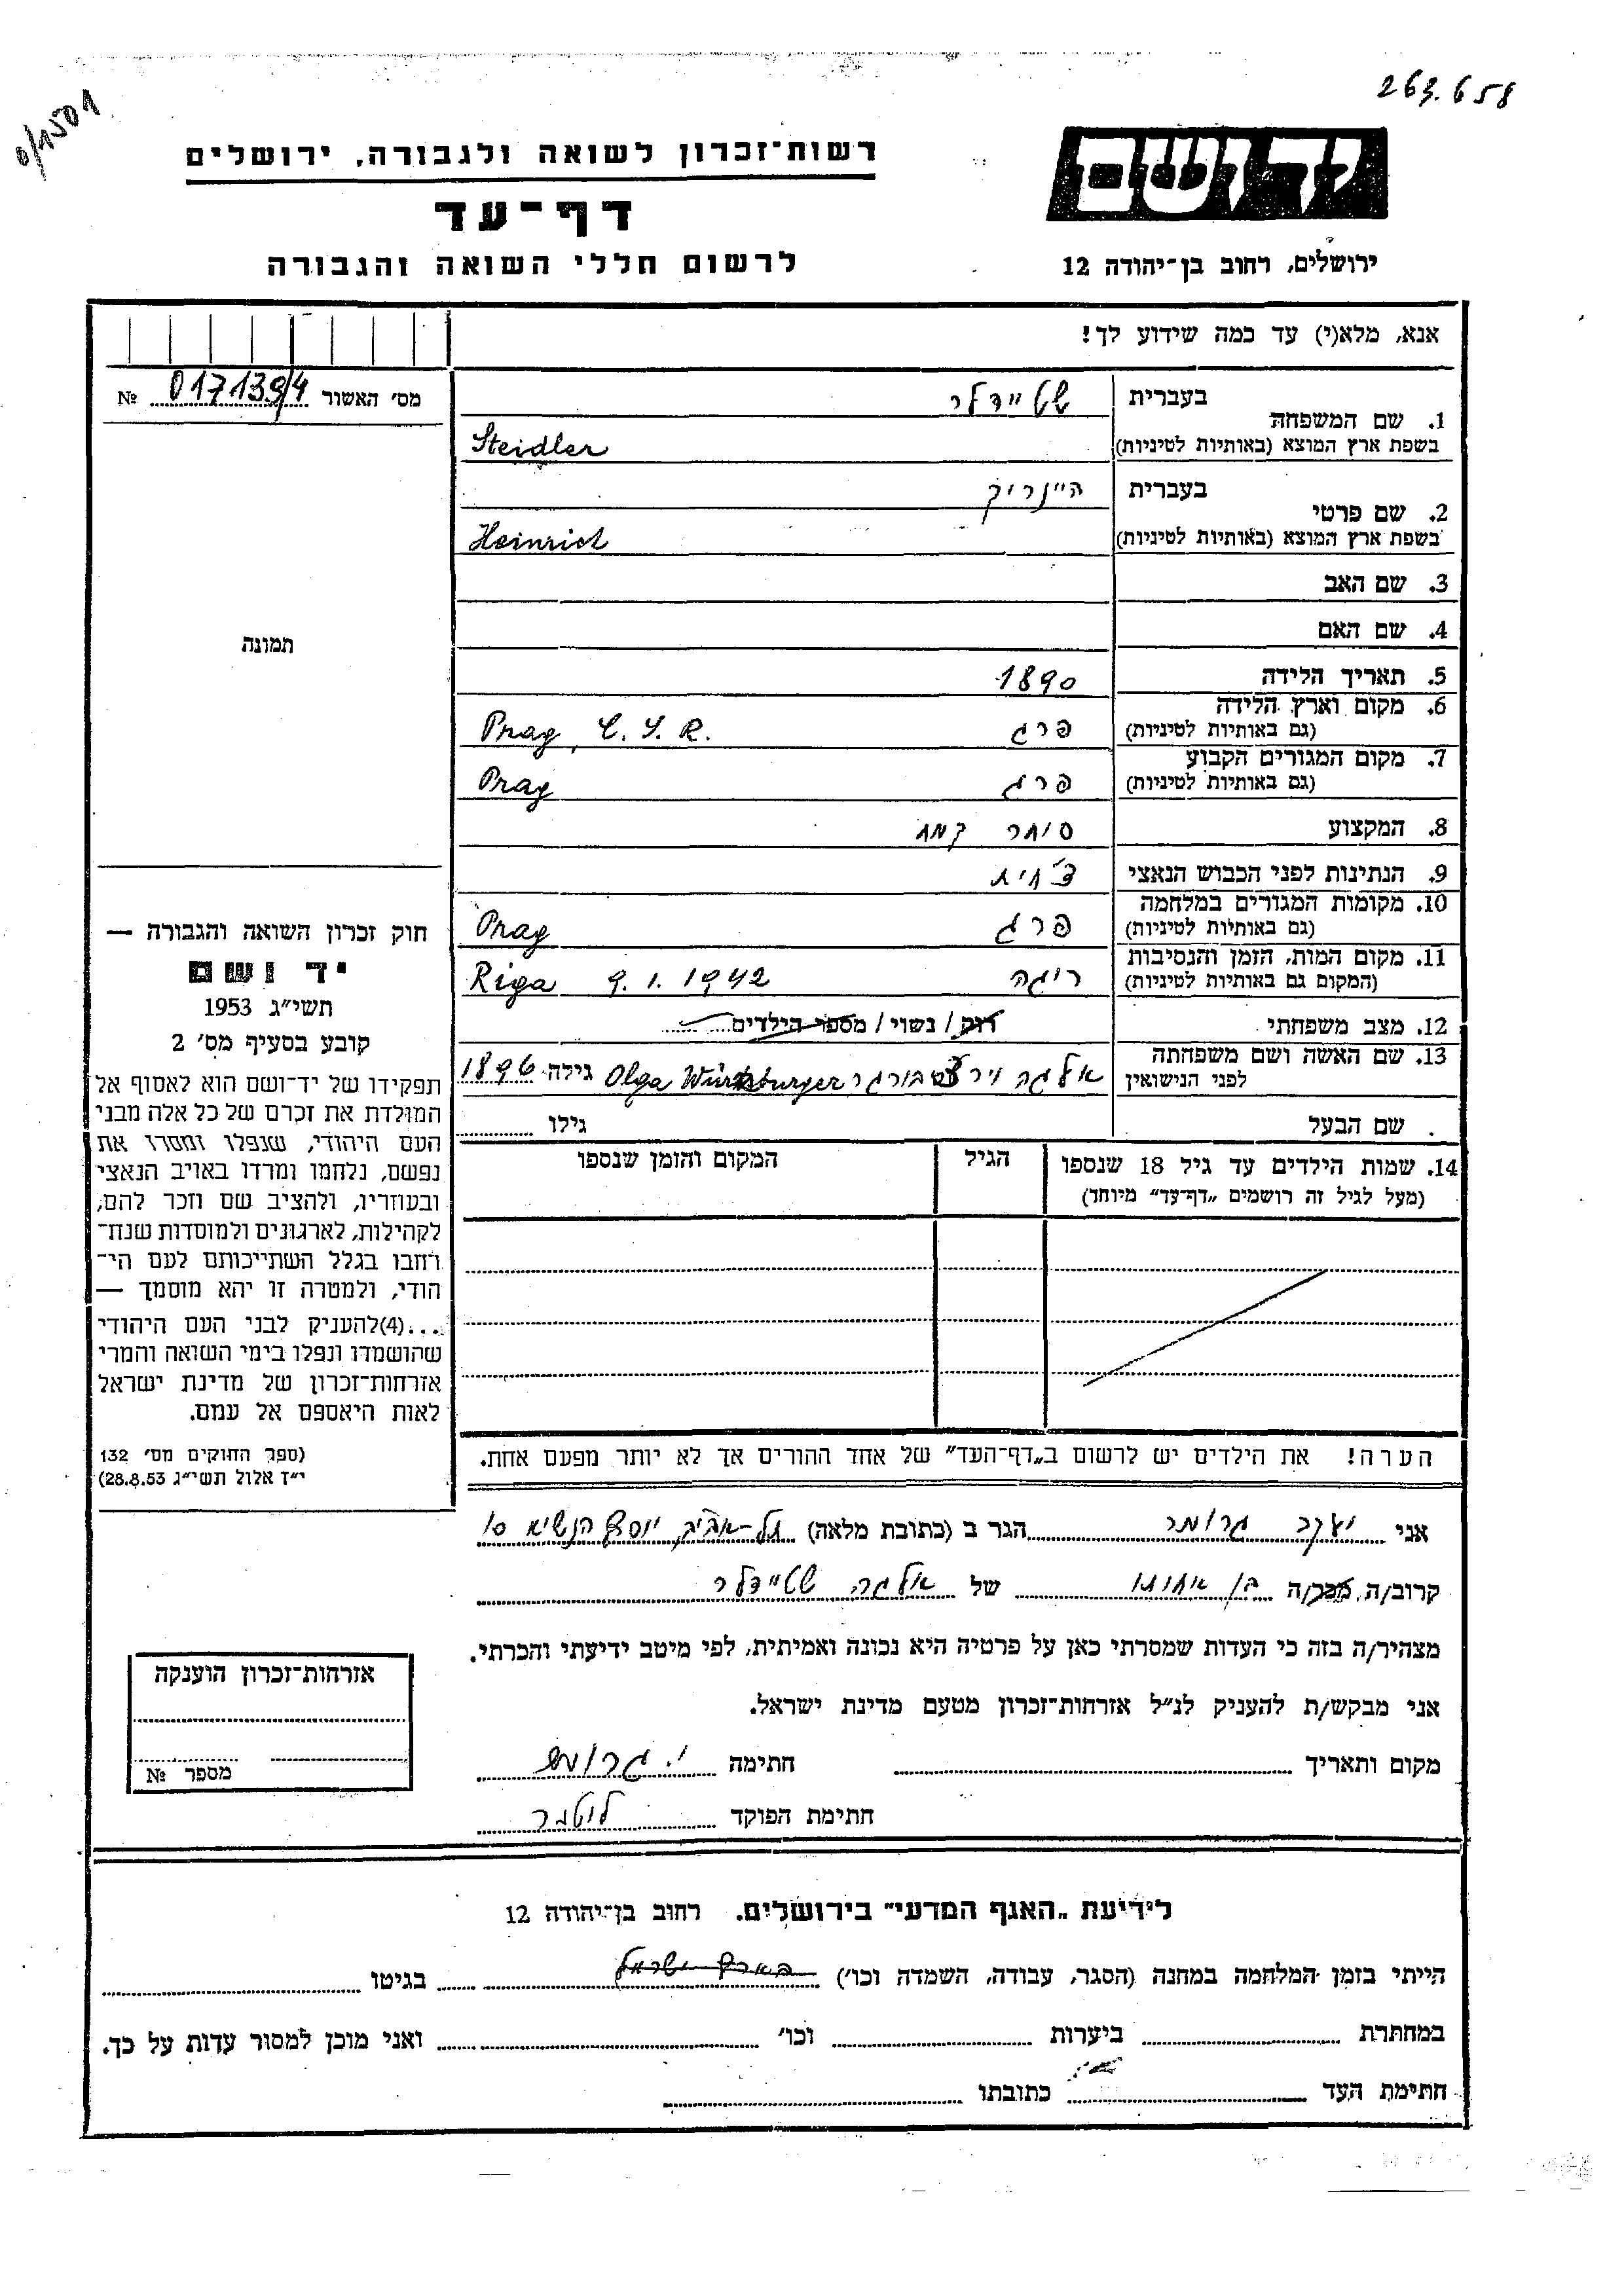 263.658
0/1501
רשות־זכרון לשואה ולגבורה, ירושלים
דף־עד
לרשום חללי השואה והגבורה
יד ושם
ירושלים, רחוב בן־יהודה 12
אנא, מלא(י) עד כמה שידוע לך!
מס׳ האשור 0171394 №
1. שם המשפחה
בעברית שטיידלר
בשפת ארץ המוצא (באותיות לטיניות) Steidler
2. שם פרטי
בעברית היינריך
בשפת ארץ המוצא (באותיות לטיניות) Heinrich
3. שם האב
4. שם האם
5. תאריך הלידה 1890
6. מקום וארץ הלידה
(גם באותיות לטיניות) פרג Prag, C. S. R.
7. מקום המגורים הקבוע
(גם באותיות לטיניות) פרג Prag
8. המקצוע סוחר קמח
9. הנתינות לפני הכבוש הנאצי צ׳כית
10. מקומות המגורים במלחמה
(גם באותיות לטיניות) פרג Prag
11. מקום המות, הזמן והנסיבות
(המקום גם באותיות לטיניות) ריגה Riga 9.1.1942
12. מצב משפחתי רוק / נשוי / מספר הילדים
13. שם האשה ושם משפחתה
לפני הנישואין אלגה וירצבורגר Olga Würzburger גילה 1896
שם הבעל גילו
14. שמות הילדים עד גיל 18 שנספו
(מעל לגיל זה רושמים „דף־עד״ מיוחד)
הגיל
המקום והזמן שנספו
הערה! את הילדים יש לרשום ב„דף־העד״ של אחד ההורים אך לא יותר מפעם אחת.
תמונה
חוק זכרון השואה והגבורה —
יד ושם
תשי״ג 1953
קובע בסעיף מס׳ 2
תפקידו של יד־ושם הוא לאסוף אל
המולדת את זכרם של כל אלה מבני
העם היהודי, שנפלו ומסרו את
נפשם, נלחמו ומרדו באויב הנאצי
ובעוזריו, ולהציב שם וזכר להם,
לקהילות, לארגונים ולמוסדות שנח־
רחבו בגלל השתייכותם לעם הי־
הודי, ולמטרה זו יהא מוסמך —
...(4) להעניק לבני העם היהודי
שהושמדו ונפלו בימי השואה והמרי
אזרחות־זכרון של מדינת ישראל
לאות היאספם אל עמם.
(ספר החוקים מס׳ 132
י״ז אלול תשי״ג 28.8.53)
אני יעקב הגר ב (כתובת מלאה) תל־אביב יוסף הנשיא 10
קרוב/ה מכר/ה בן אחותו של אלגה שטיידלר
מצהיר/ה בזה כי העדות שמסרתי כאן על פרטיה היא נכונה ואמיתית, לפי מיטב ידיעתי והכרתי.
אני מבקש/ת להעניק לנ״ל אזרחות־זכרון מטעם מדינת ישראל.
מקום ותאריך חתימה
חתימת הפוקד
אזרחות־זכרון הוענקה
מספר №
לידיעת „האגף המדעי״ בירושלים. רחוב בן־יהודה 12
הייתי בזמן המלחמה במחנה (הסגר, עבודה, השמדה וכו׳) בארץ ישראל בגיטו
במחתרת ביערות וכו׳ ואני מוכן למסור עדות על כך.
חתימת העד כתובתו